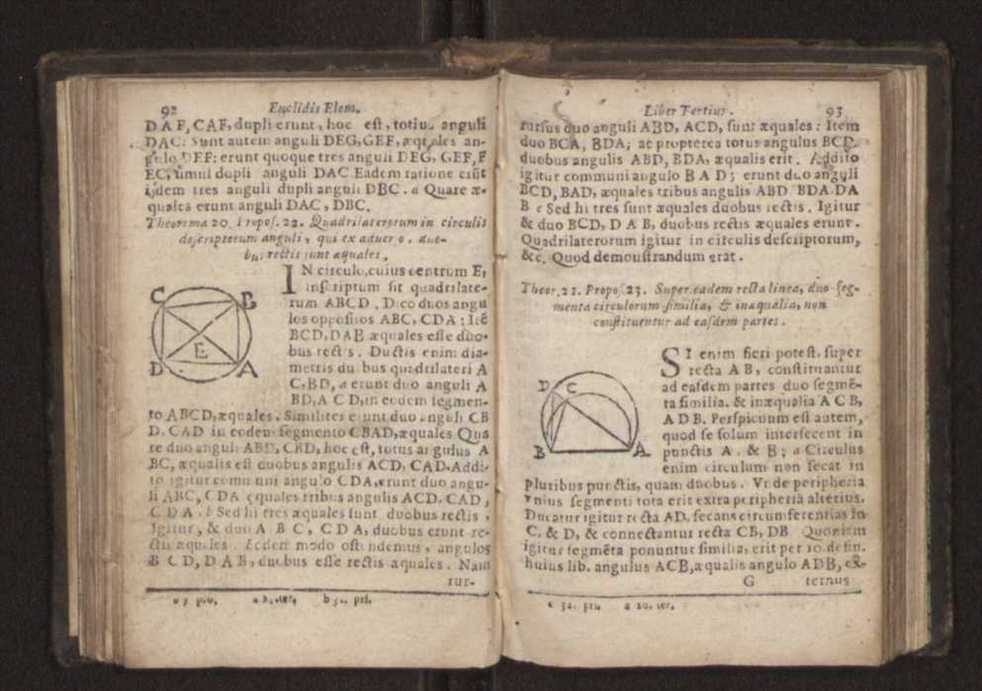 92 Euclidis Elem.
DAF, CAF, dupli erunt, hoc est, totius anguli
DAC: Sunt autem anguli DEG, GEF, æquales an-
gulo DEF: erunt quoque tres anguli DEG, GEF, F
EC, simul dupli anguli DAC Eadem ratione erũt
ijdem tres anguli dupli anguli DBC. a Quare æ-
quales erunt anguli DAC, DBC.
Theorema 20. Propos. 22. Quadrilaterorum in circulis
descriptorum anguli, qui ex aduerso, duo-
bus rectis sunt æquales.
IN circulo, cuius centrum E,
inscriptum sit quadrilate-
rum ABCD. Dico duos angu
los oppositos ABC, CDA; Itẽ
BCD, DAB æquales esse duo-
bus rectis. Ductis enim dia-
metris duobus quadrilateri A
C, BD, a erunt duo anguli A
BD, A C D, in eodem segmen-
to ABCD, æquales. Similiter erunt duo anguli CB
D, CAD in eodem segmento CBAD, æquales Qua
re duo anguli ABD, CBD, hoc est, totus angulus A
BC, æqualis est duobus angulis ACD, CAD. Addi-
to igitur communi angulo CDA, erunt duo angu-
li ABC, CDA æquales tribus angulis ACD, CAD,
C D A. b Sed hi tres æquales sunt duobus rectis,
Igitur, & duo A B C, C D A, duobus erunt re-
ctis æquales. Eodem modo ostendemus, angulos
B C D, D A B, duobus esse rectis æquales. Nam
rur-
C
B
D
E
A
Liber Tertius. 93
rursus duo anguli ABD, ACD, sunt æquales: Item
duo BCA, BDA; ac propterea totus angulus BCD,
duobus angulis ABD, BDA, æqualis erit. Addito
igitur communi angulo B A D; erunt duo anguli
BCD, BAD, æquales tribus angulis ABD BDA DA
B c Sed hi tres sunt æquales duobus rectis. Igitur
& duo BCD, D A B, duobus rectis æquales erunt.
Quadrilaterorum igitur in circulis descriptorum,
&c. Quod demonstrandum erat.
Theor. 21. Propos. 23. Super eadem recta linea, duo seg-
menta circulorum similia, & inæqualia, non
constituentur ad easdem partes.
SI enim fieri potest, super
recta A B, constituantur
ad easdem partes duo segmẽ-
ta similia, & inæqualia A C B,
A D B. Perspicuum est autem,
quod se solum intersecent in
punctis A, & B; a Circulus
enim circulum non secat in
pluribus punctis, quam duobus. Vnde peripheria
vnius segmenti tota erit extra peripheriã alterius.
Ducatur igitur recta AD, secans circumferentias in
C, & D, & connectantur recta CB, DB Quoniam
igitur segmẽta ponuntur similia, erit per 10. defin.
huius lib. angulus ACB, æqualis angulo ADB, ex-
G ternus
D
C
B
A
c 32. pri. a 10. ter.